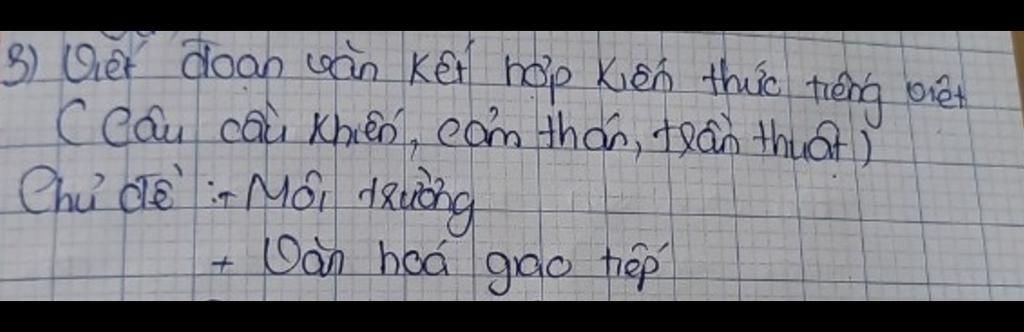 3) Viết đoạn văn kết hợp kiến thức tiếng việt
( Câu cầu khiến, cảm thán, trần thuật )
Chủ đề : + Môi trường
+ Văn hoá giao tiếp